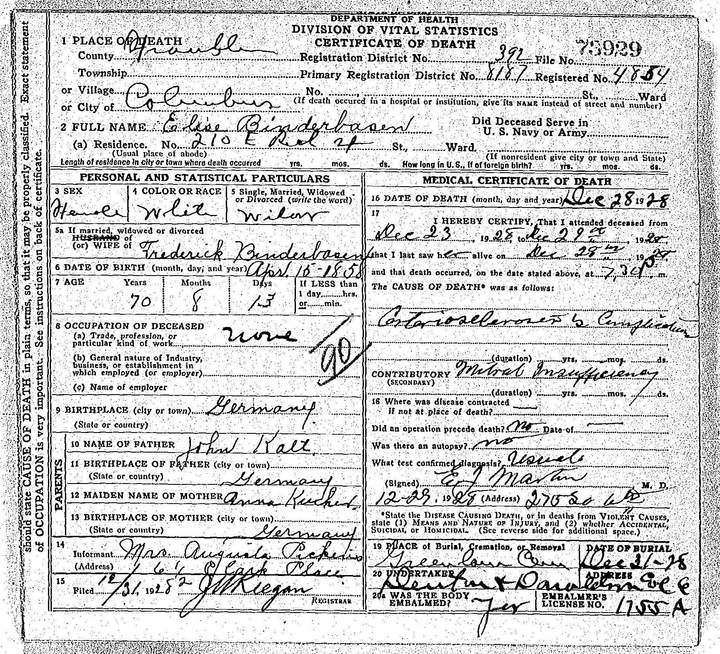 DEPARTMENT OF HEALTH
DIVISION OF VITAL STATISTICS
CERTIFICATE OF DEATH
1 PLACE OF DEATH
County Franklin Registration District No. 392 File No. 75929
Township Primary Registration District No. 8187 Registered No. 4854
or Village No. St., Ward
or City of Columbus (If death occured in a hospital or institution, give its NAME instead of street and number)
2 FULL NAME Elise Binderbasen Did Deceased Serve in U. S. Navy or Army
(a) Residence. No. 210 E St., Ward.
(Usual place of abode) (If nonresident give city or town and State)
Length of residence in city or town where death occurred yrs. mos. ds. How long in U. S., if of foreign birth? yrs. mos. ds.
PERSONAL AND STATISTICAL PARTICULARS
3 SEX Female
4 COLOR OR RACE White
5 Single, Married, Widowed or Divorced (write the word) Widow
5a If married, widowed or divorced
HUSBAND of
(or) WIFE of Frederick Binderbasen
6 DATE OF BIRTH (month, day, and year) Apr. 15-1858
7 AGE Years 70 Months 8 Days 13 If LESS than 1 day hrs. or min.
8 OCCUPATION OF DECEASED
(a) Trade, profession, or particular kind of work none
(b) General nature of Industry, business, or establishment in which employed (or employer)
(c) Name of employer
90
9 BIRTHPLACE (city or town) Germany
(State or country)
PARENTS
10 NAME OF FATHER John Kalt
11 BIRTHPLACE OF FATHER (city or town)
(State or country) Germany
12 MAIDEN NAME OF MOTHER Anna
13 BIRTHPLACE OF MOTHER (city or town)
(State or country) Germany
14 Informant Mrs. Augusta
(Address) Place
15 Filed 12/31, 1928 REGISTRAR
MEDICAL CERTIFICATE OF DEATH
16 DATE OF DEATH (month, day and year) Dec 28 1928
17 I HEREBY CERTIFY, That I attended deceased from
Dec 23, 1928 to Dec
that I last saw her alive on Dec 28
and that death occurred, on the date stated above, at 7 30 P m.
The CAUSE OF DEATH* was as follows:
(duration) yrs. mos. ds.
CONTRIBUTORY Mitral Insufficiency
(SECONDARY)
(duration) yrs. mos. ds.
18 Where was disease contracted
If not at place of death?
Did an operation precede death? no Date of
Was there an autopsy? no
What test confirmed diagnosis? Usual
(Signed) E J Martin M. D.
12-29, 1928 (Address) 275 So
*State the DISEASE CAUSING DEATH, or in deaths from VIOLENT CAUSES, state (1) MEANS AND NATURE OF INJURY, and (2) whether ACCIDENTAL, SUICIDAL, or HOMICIDAL. (See reverse side for additional space.)
19 PLACE of Burial, Cremation, or Removal Greenlawn Cem DATE OF BURIAL Dec 31-28
20 UNDERTAKER ADDRESS
20a WAS THE BODY EMBALMED? Yes EMBALMER'S LICENSE NO. 1755 A
should state CAUSE OF DEATH in plain terms, so that it may be properly classified. Exact statement
of OCCUPATION is very important. See instructions on back of certificate.